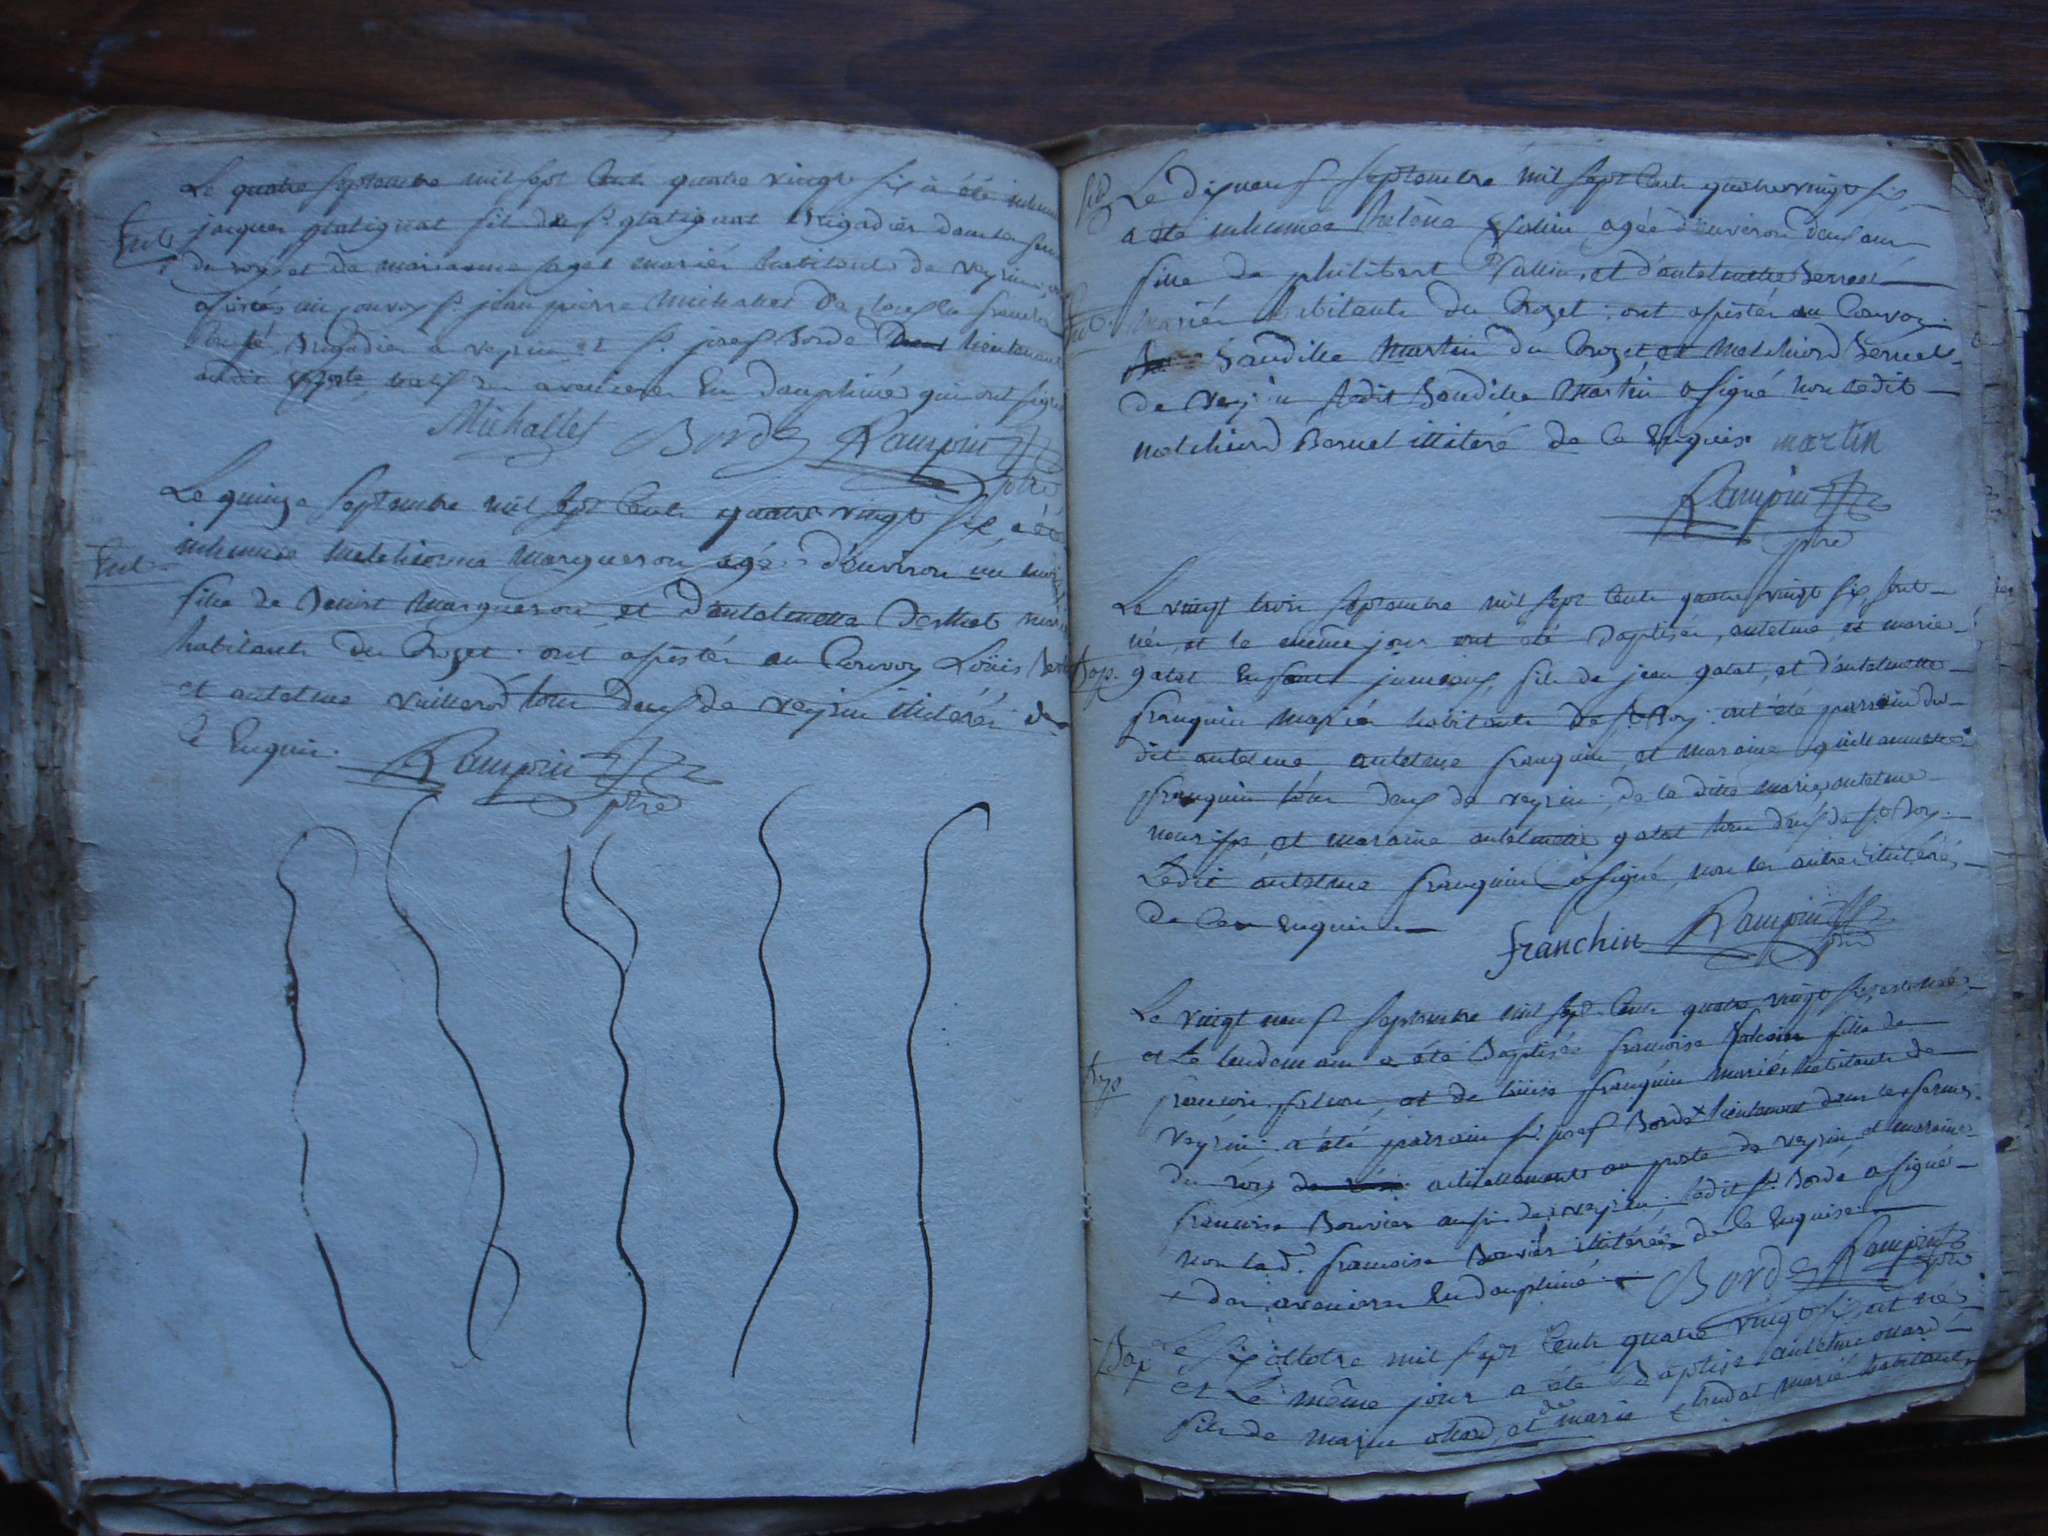 Le quatre septembre mil sept cents quatre vingt six a été inhumé
Ent.
jacques platignat fils de sr platignat Brigadier dans les
du roy et de marianne mariés habitants de veyrin
au convoy sr jean pierre Michallet de
Brigadier a veyrin et sr josef Borde lieutenant
audit poste, natif des avenieres En dauphiné qui ont signé
Michallet Borde Rampin
ptre
Le quinze septembre mil sept cents quatre vingt six, a été
Ent.
inhumée Melchionne Marqueron agée d'environ un mois
fille de Benoit Marqueron, et d'antelmette Berthet mariés
habitants du Crozet. ont assistés au Convoy Loüis
et antelme vuillerod tous deux de veyrin illiterés de
ce Enquis. Rampin
ptre
Le dixneuf septembre mil sept cents quatrevingt six,
a été inhumée helène vallin agée d'environ deux ans
fille de philibert vallin, et d'antelmette Berret
mariés habitants du Crozet: ont assistés au Convoy
Martin du Crozet et Melchiord Bernet
de veyrin ledit Martin a signé non ledit
melchiord Bernet illiteré de ce Enquis martin
Rampin
ptre
Le vingt trois septembre mil sept cents quatre vingt six, sont
nés, et le même jour ont été Baptisés, antelme, et marie
Bap.
gatat Enfants jumeaux, fils de jean gatat, et d'antelmette
franquin mariés habitants de ont été parrain du
dit antelme, antelme franquin, et maraine
franquin tous deux de veyrin; de la dite marie, antelme
et maraine antelmette gatat tous deux de
Ledit antelme franquin a signé, non les autres illiterés,
de Ceux Enquis
franchin Rampin
ptre
Le vingt neuf septembre mil sept cents quatre vingt six, est née,
et Le lendemain a été Baptisée francoise falcon fille de
Bap
francois falcon, et de loüise franquin mariés habitants de
veyrin. a été parrain sr josef Borde + lieutenant dans les fermes
du roy actüellement au poste de veyrin, et maraine
francoise Bouvier aussi de veyrin; ledit sr Borde a signé
non lad. francoise Bouvier illiterée de ce Enquise.
+ des avenieres En dauphiné Borde Rampin
ptre
Bap
Le six octobre mil sept cents quatre vingt six, est né
et Le même jour a été Baptisé antelme ottard
fils de ottard, et de marie trudat mariés habitants